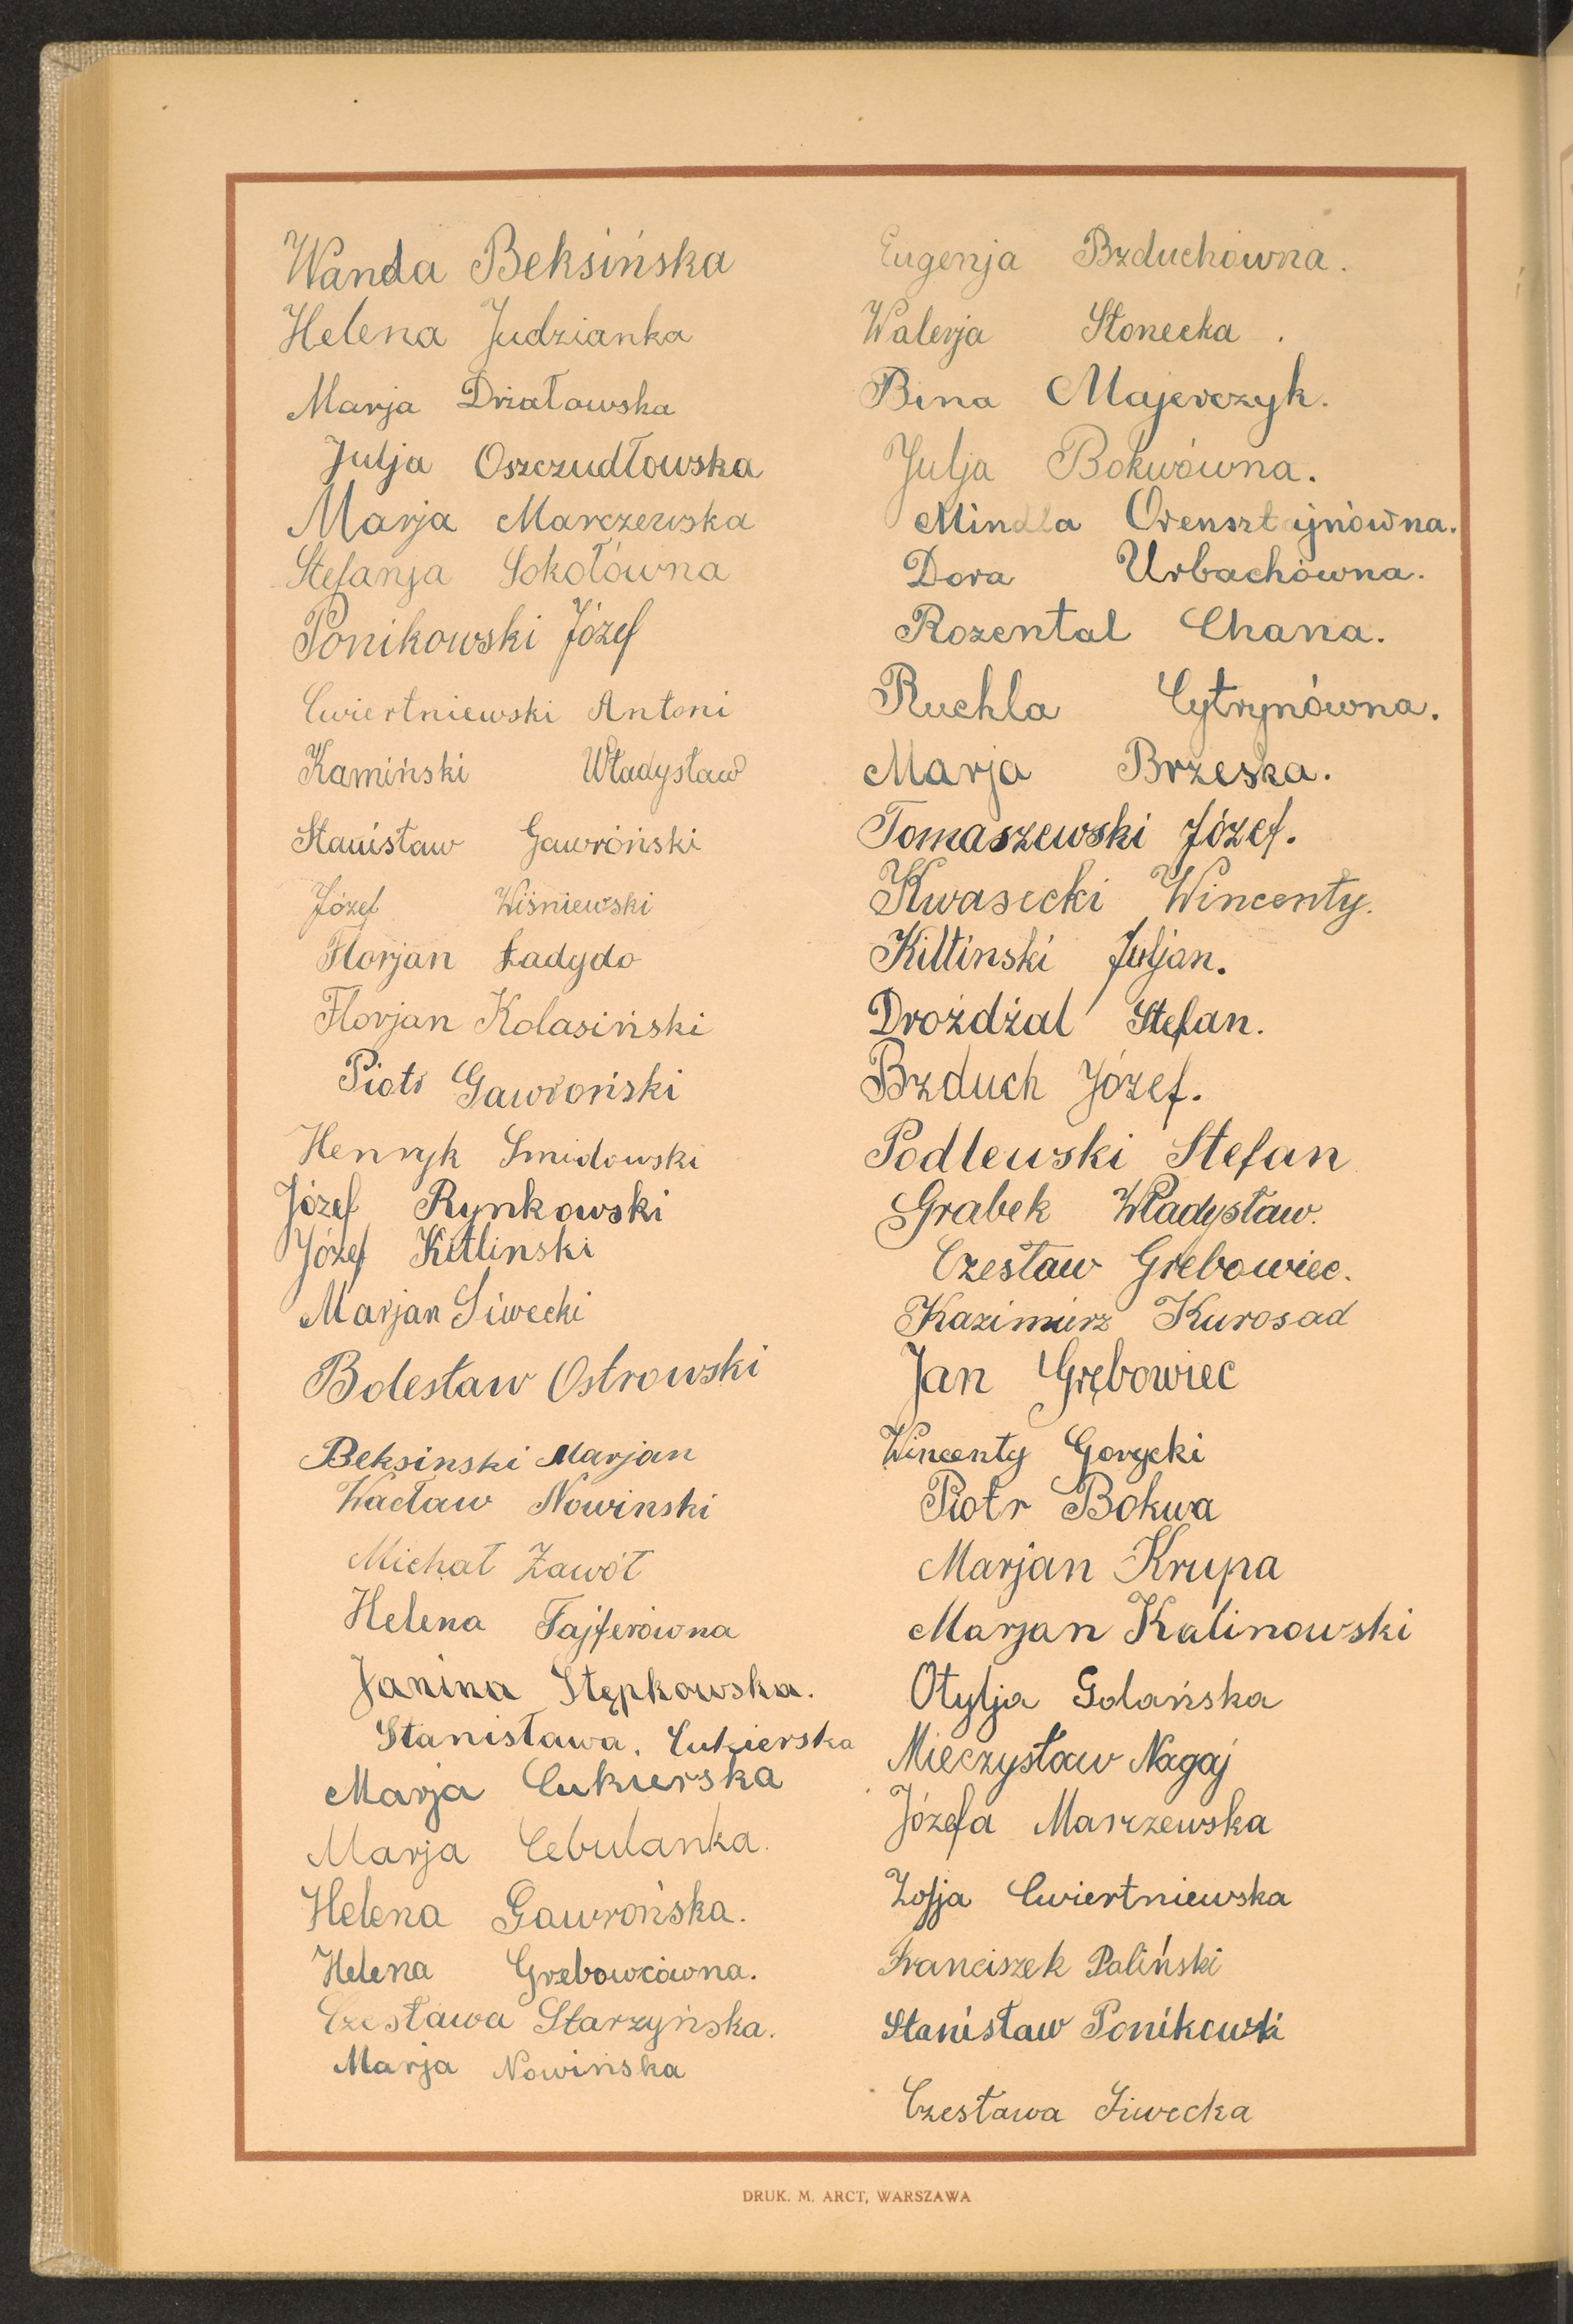 Wanda Beksińska
Helena Judzianka
Marja Działowska
Julja Oszczudłowska
Marja Marczewska
Stefanja Sokołówna
Ponikowski Józef
Cwiertniewski Antoni
Kamiński Władysław
Stanisław Gawroński
Józef Wiśniewski
Florjan Ładydo
Florjan Kolasiński
Piotr Gawroński
Henryk Smidowski
Józef Rynkowski
Józef Kitlinski
Marjan Siwecki
Bolesław Ostrowski
Beksinski Marjan
Wacław Nowinski
Michał Zawół
Helena Fajferówna
Janina Stępkowska.
Stanisława. Cukierska
Marja Cukierska
Marja Cebulanka.
Helena Gawrońska.
Helena Grzebowcówna.
Czesława Starzyńska.
Marja Nowińska
Eugenja Bzduchówna.
Walerja Słonecka.
Bina Majerczyk.
Julja Bokwówna.
Mindla Orensztajnówna.
Dora Urbachówna.
Rozental Chana.
Ruchla Cytrynówna.
Marja Brzeska.
Tomaszewski Józef.
Kwasecki Wincenty.
Kitlinski Juljan.
Drożdżal Stefan.
Bzduch Józef.
Podlewski Stefan
Grabek Władysław.
Czesław Grebowiec.
Kazimierz Kurosad
Jan Grębowiec
Wincenty Gorycki
Piotr Bokwa
Marjan Krupa
Marjan Kalinowski
Otylja Golańska
Mieczysław Nagaj
Józefa Marczewska
Zofja Cwiertniewska
Franciszek Paliński
Stanisław Ponikowski
Czesława Siwecka
DRUK. M. ARCT, WARSZAWA